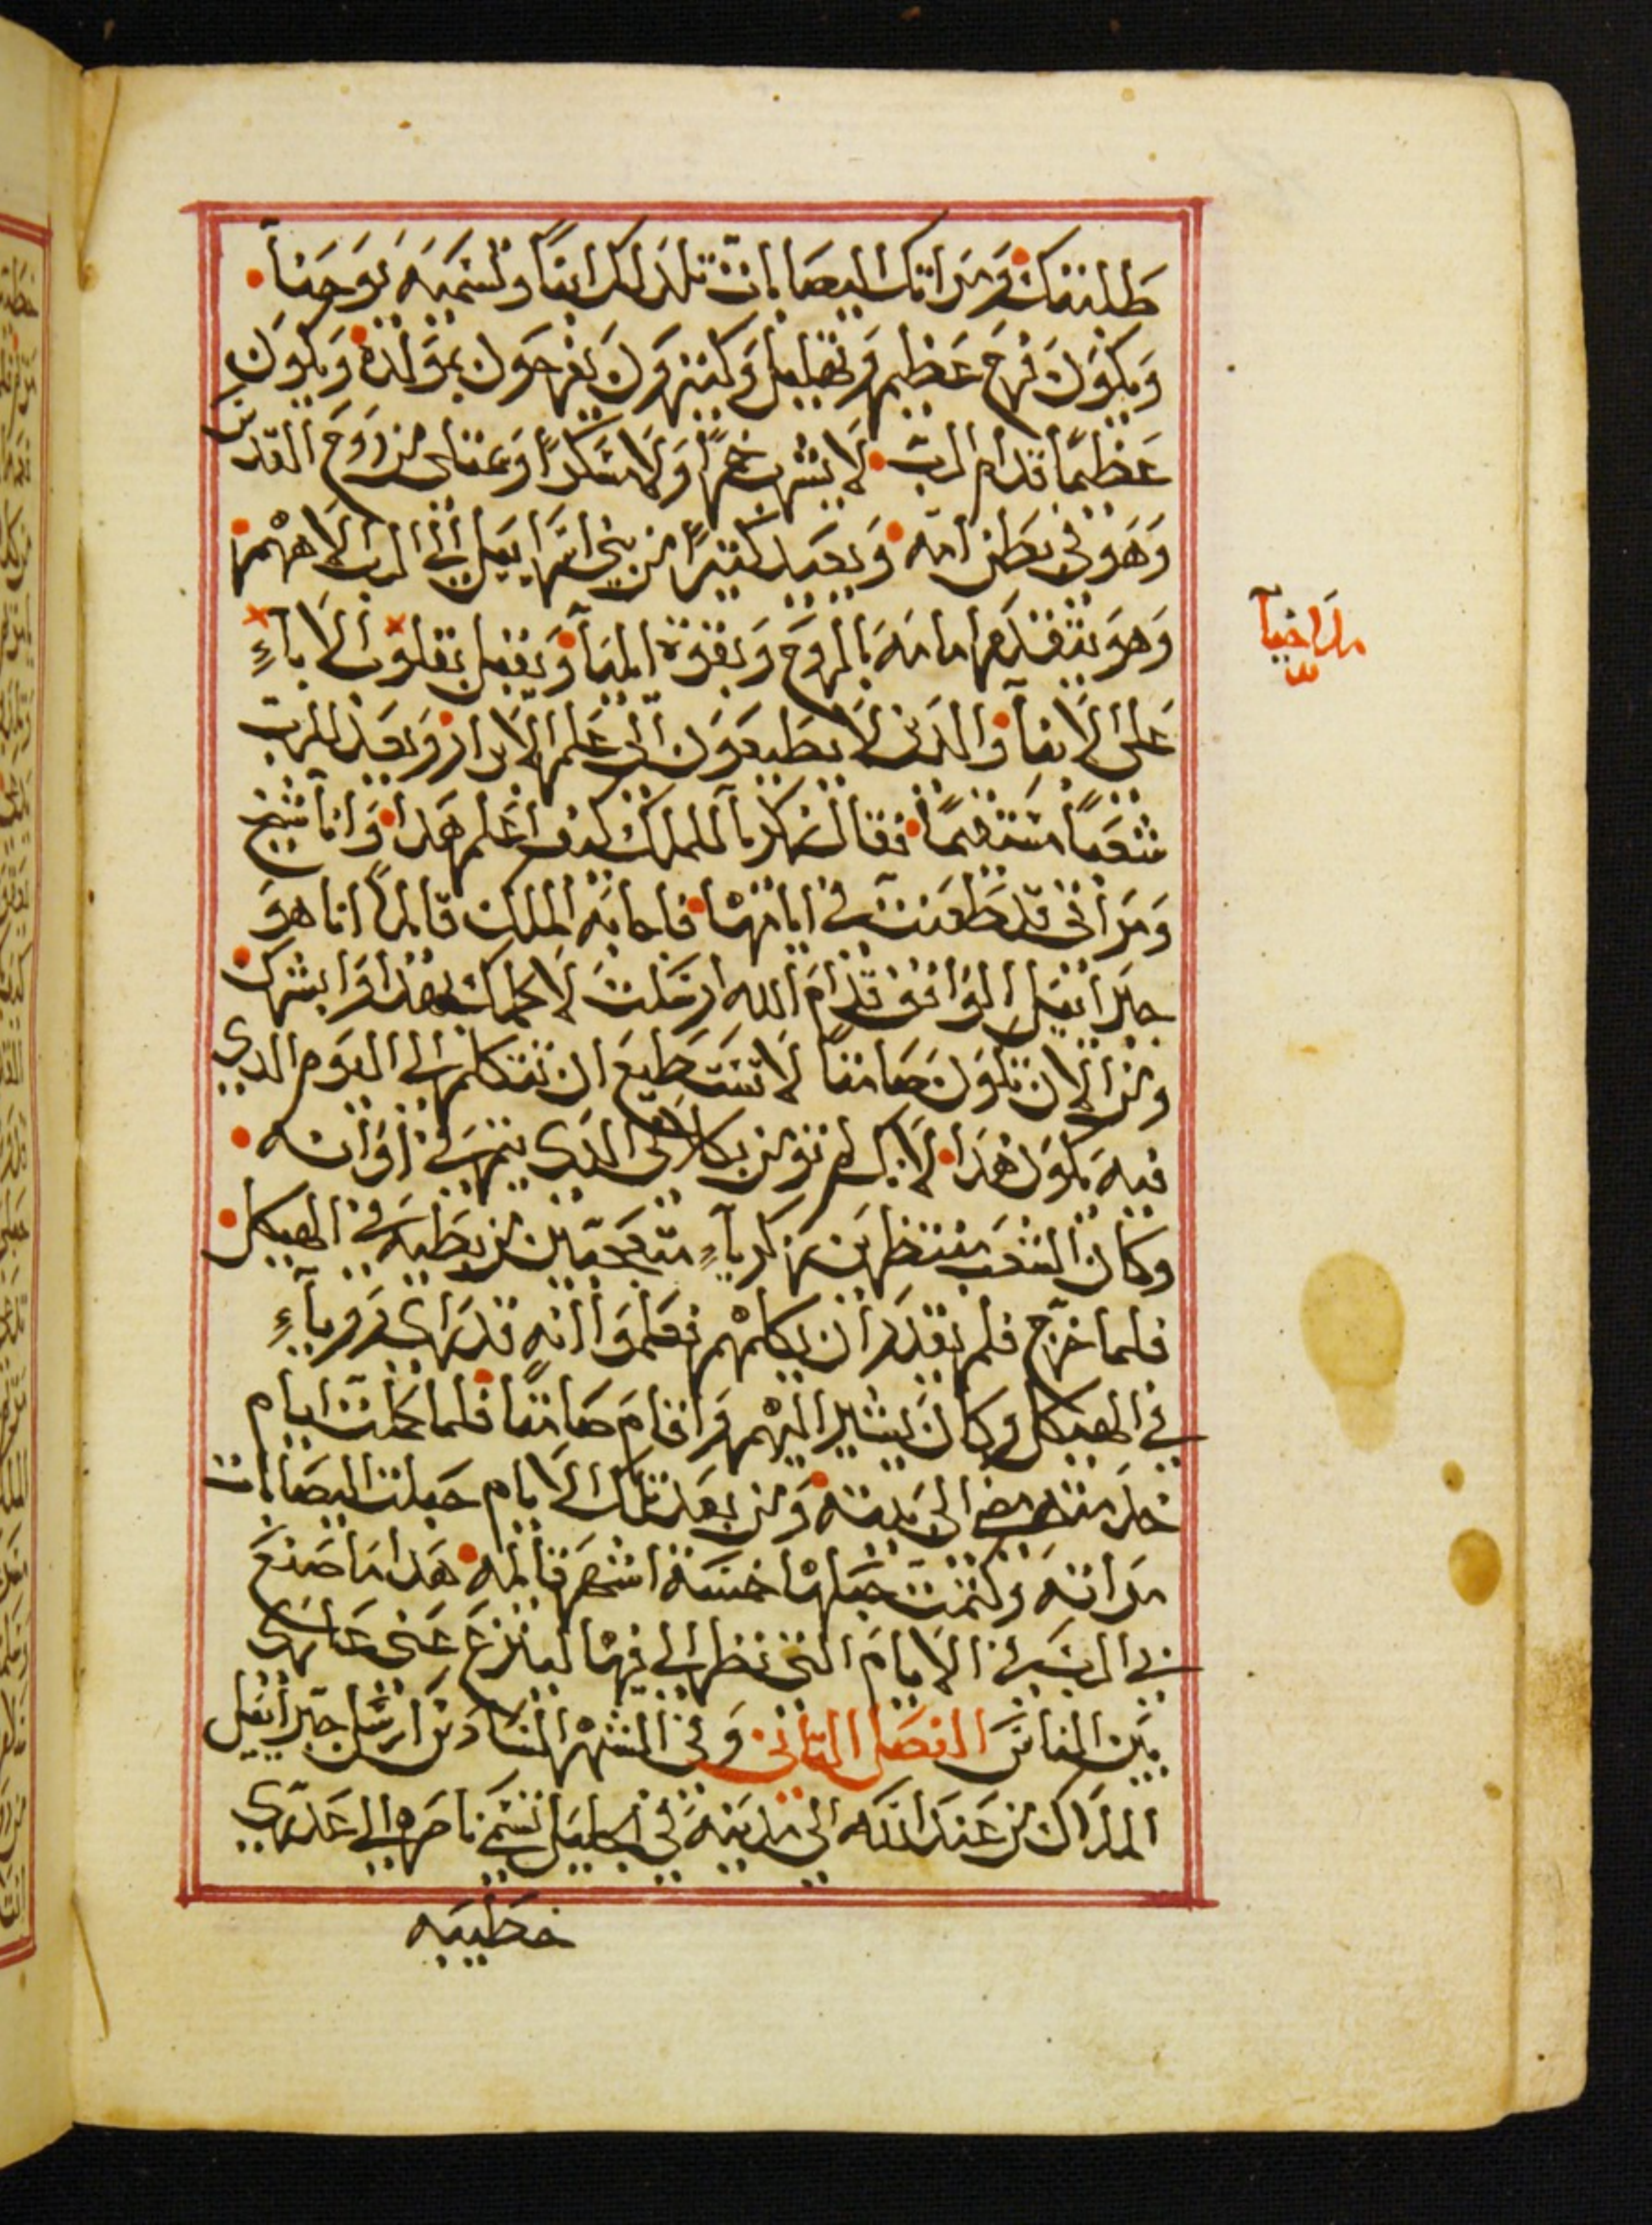 طلبتك ومراتك اليصابات تلد لك ابنًا وتسميه يوحنا
ويكون فرح عظيم وتهليل وكثيرون يفرحون بمولده ويكون
عظيمًا قدام الرب لا يشرب خمرًا ولا مسكرًا وعتلى من روح القدس
وهو في بطن امه ويعيد كثيرًا من بني اسراييل الى الرب الاههم
وهو يتقدم امامه بالروح وبقوة اليآ ويقبل بقلوب الاباءِ
على الابنآ والدين لا يطيعون الى علم الابرار ويعد للرب
شعبًا مستقيمًا فقال زكريآ للملاك كيف اعلم هدا وانا شيخ
ومراتي قد طعنت في ايامها فاجابه الملاك قايلاً انا هو
جبراييل الواقف قدام الله ارسلت لاكلمك بهدا وابشرك
ومن الان تكون صامتًا لا تستطيع ان تتكلم الى اليوم الدي
فيه يكون هدا لانك لم تومن بكلامى الدي يتم في اوانه
وكان الشعب منتظرين زكرياءِ متعجبين من بطيه في الهيكل
فلما خرج فلم يقدر ان يكلمهم فعلموا انه قد راى روياءِ
في الهيكل وكان يشير اليهم واقام صامتًا فلما كملت ايام
خدمته مضى الى بيته ومن بعد تلك الايام حبلت اليصابات
مراته وكتمت حبلها خمسة اشهر قايله هدا ما صنع
بي الرب في الايام التي نظر الي فيها لينزع عني عاري
بين الناس الفصل التاني وفي الشهر السادس ارسل جبراييل
الملاك من عند الله الى مدينة في الجليل تسمى ناصرة الى عدري
خطيبه
ملاخيآ